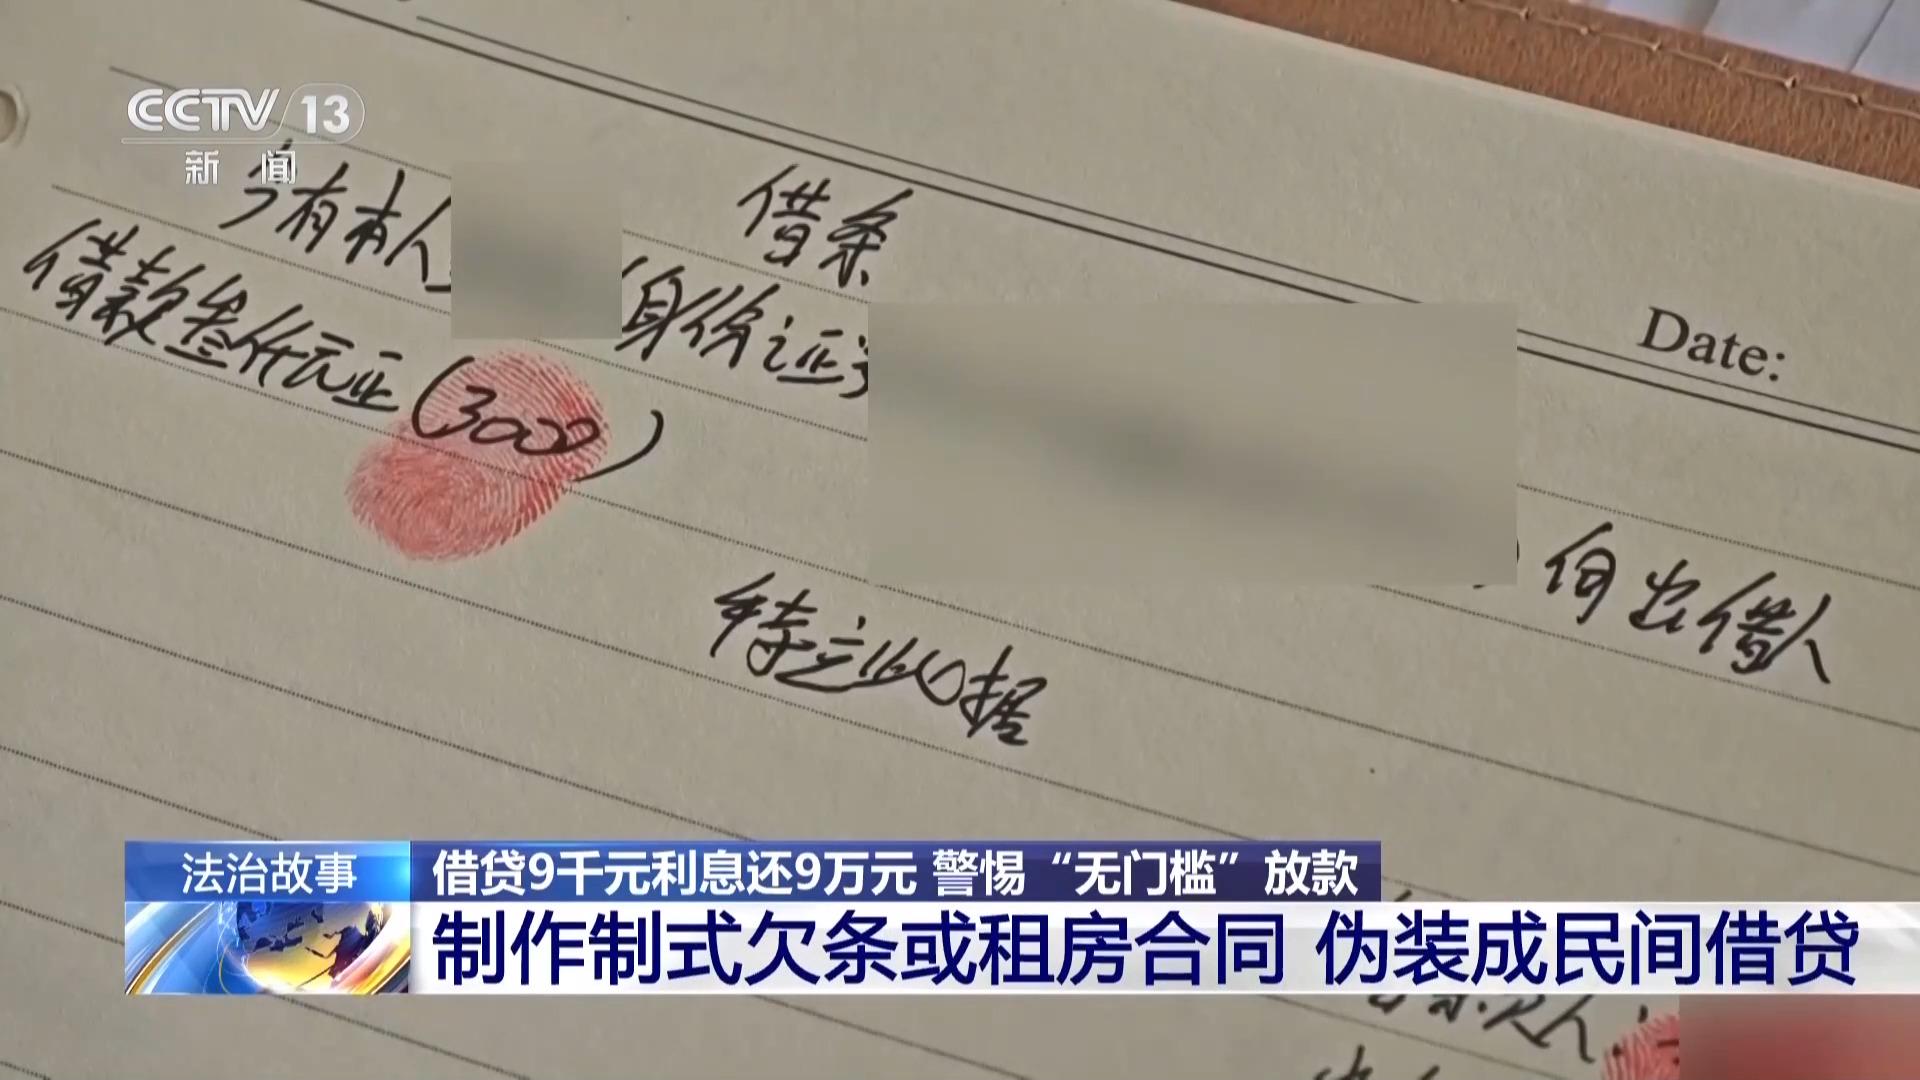 CCTV 13
新闻
借条
Date:
今有本人
身份证号
向出借人
借款叁仟元正(3000)
特立此据
借款人:
法治故事
借贷9千元利息还9万元 警惕“无门槛”放款
制作制式欠条或租房合同 伪装成民间借贷